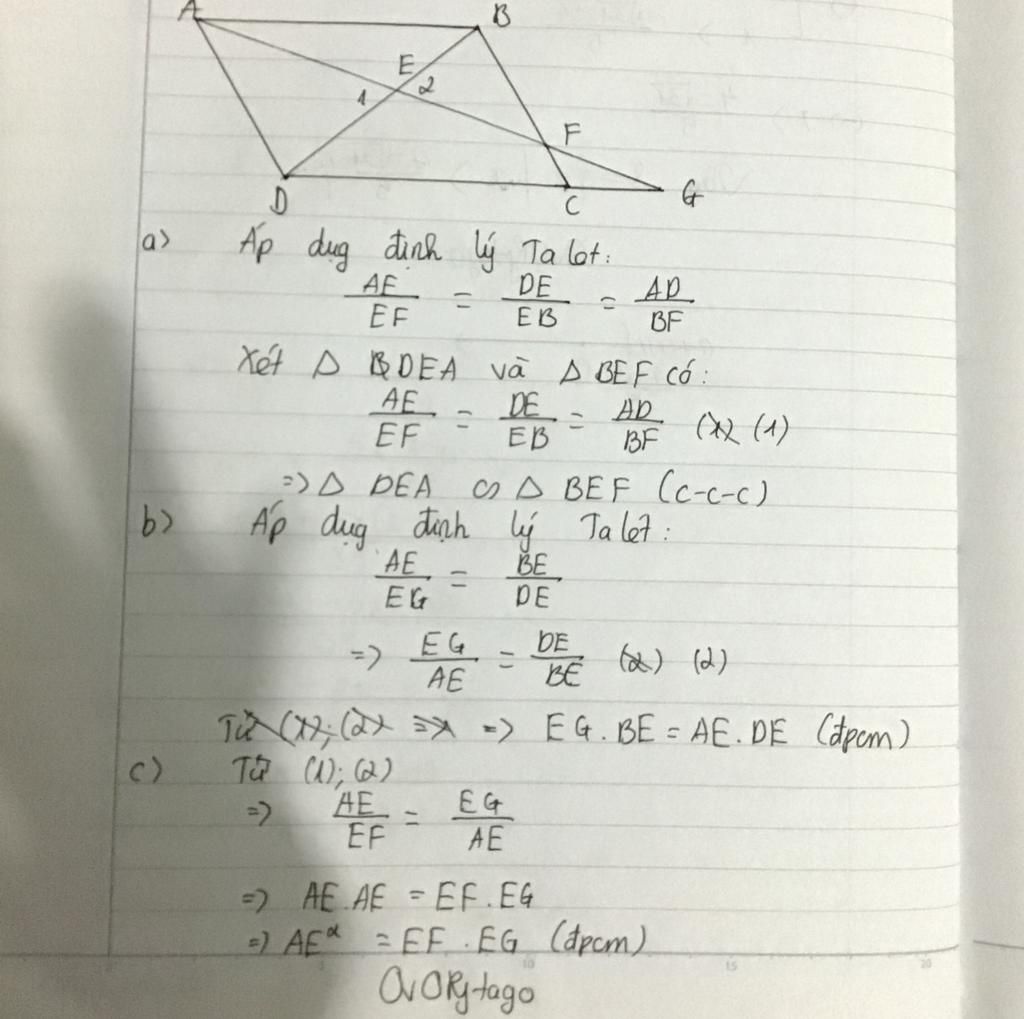 A B
E
1 2
F
D C G
a) Áp dụg định lý Ta lot:
AE/EF = DE/EB = AD/BF
Xét Δ DEA và Δ BEF có:
AE/EF = DE/EB = AD/BF (1)
=> Δ DEA ∽ Δ BEF (c-c-c)
b) Áp dụg định lý Ta let:
AE/EG = BE/DE
=> EG/AE = DE/BE (2) (2)
Từ (1); (2) => => EG.BE = AE.DE (đpcm)
c) Từ (1); (2)
=> AE/EF = EG/AE
=> AE.AE = EF.EG
=> AE² = EF.EG (đpcm)
5 10 15 20